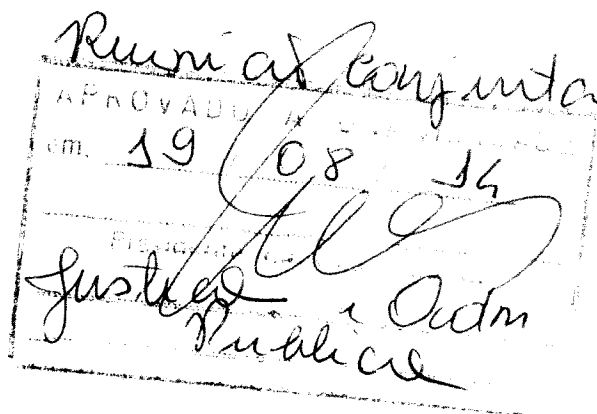 Reunião conjunta
APROVADO A
em. 19 08 14
Presidente
Justiça e Adm
Publica